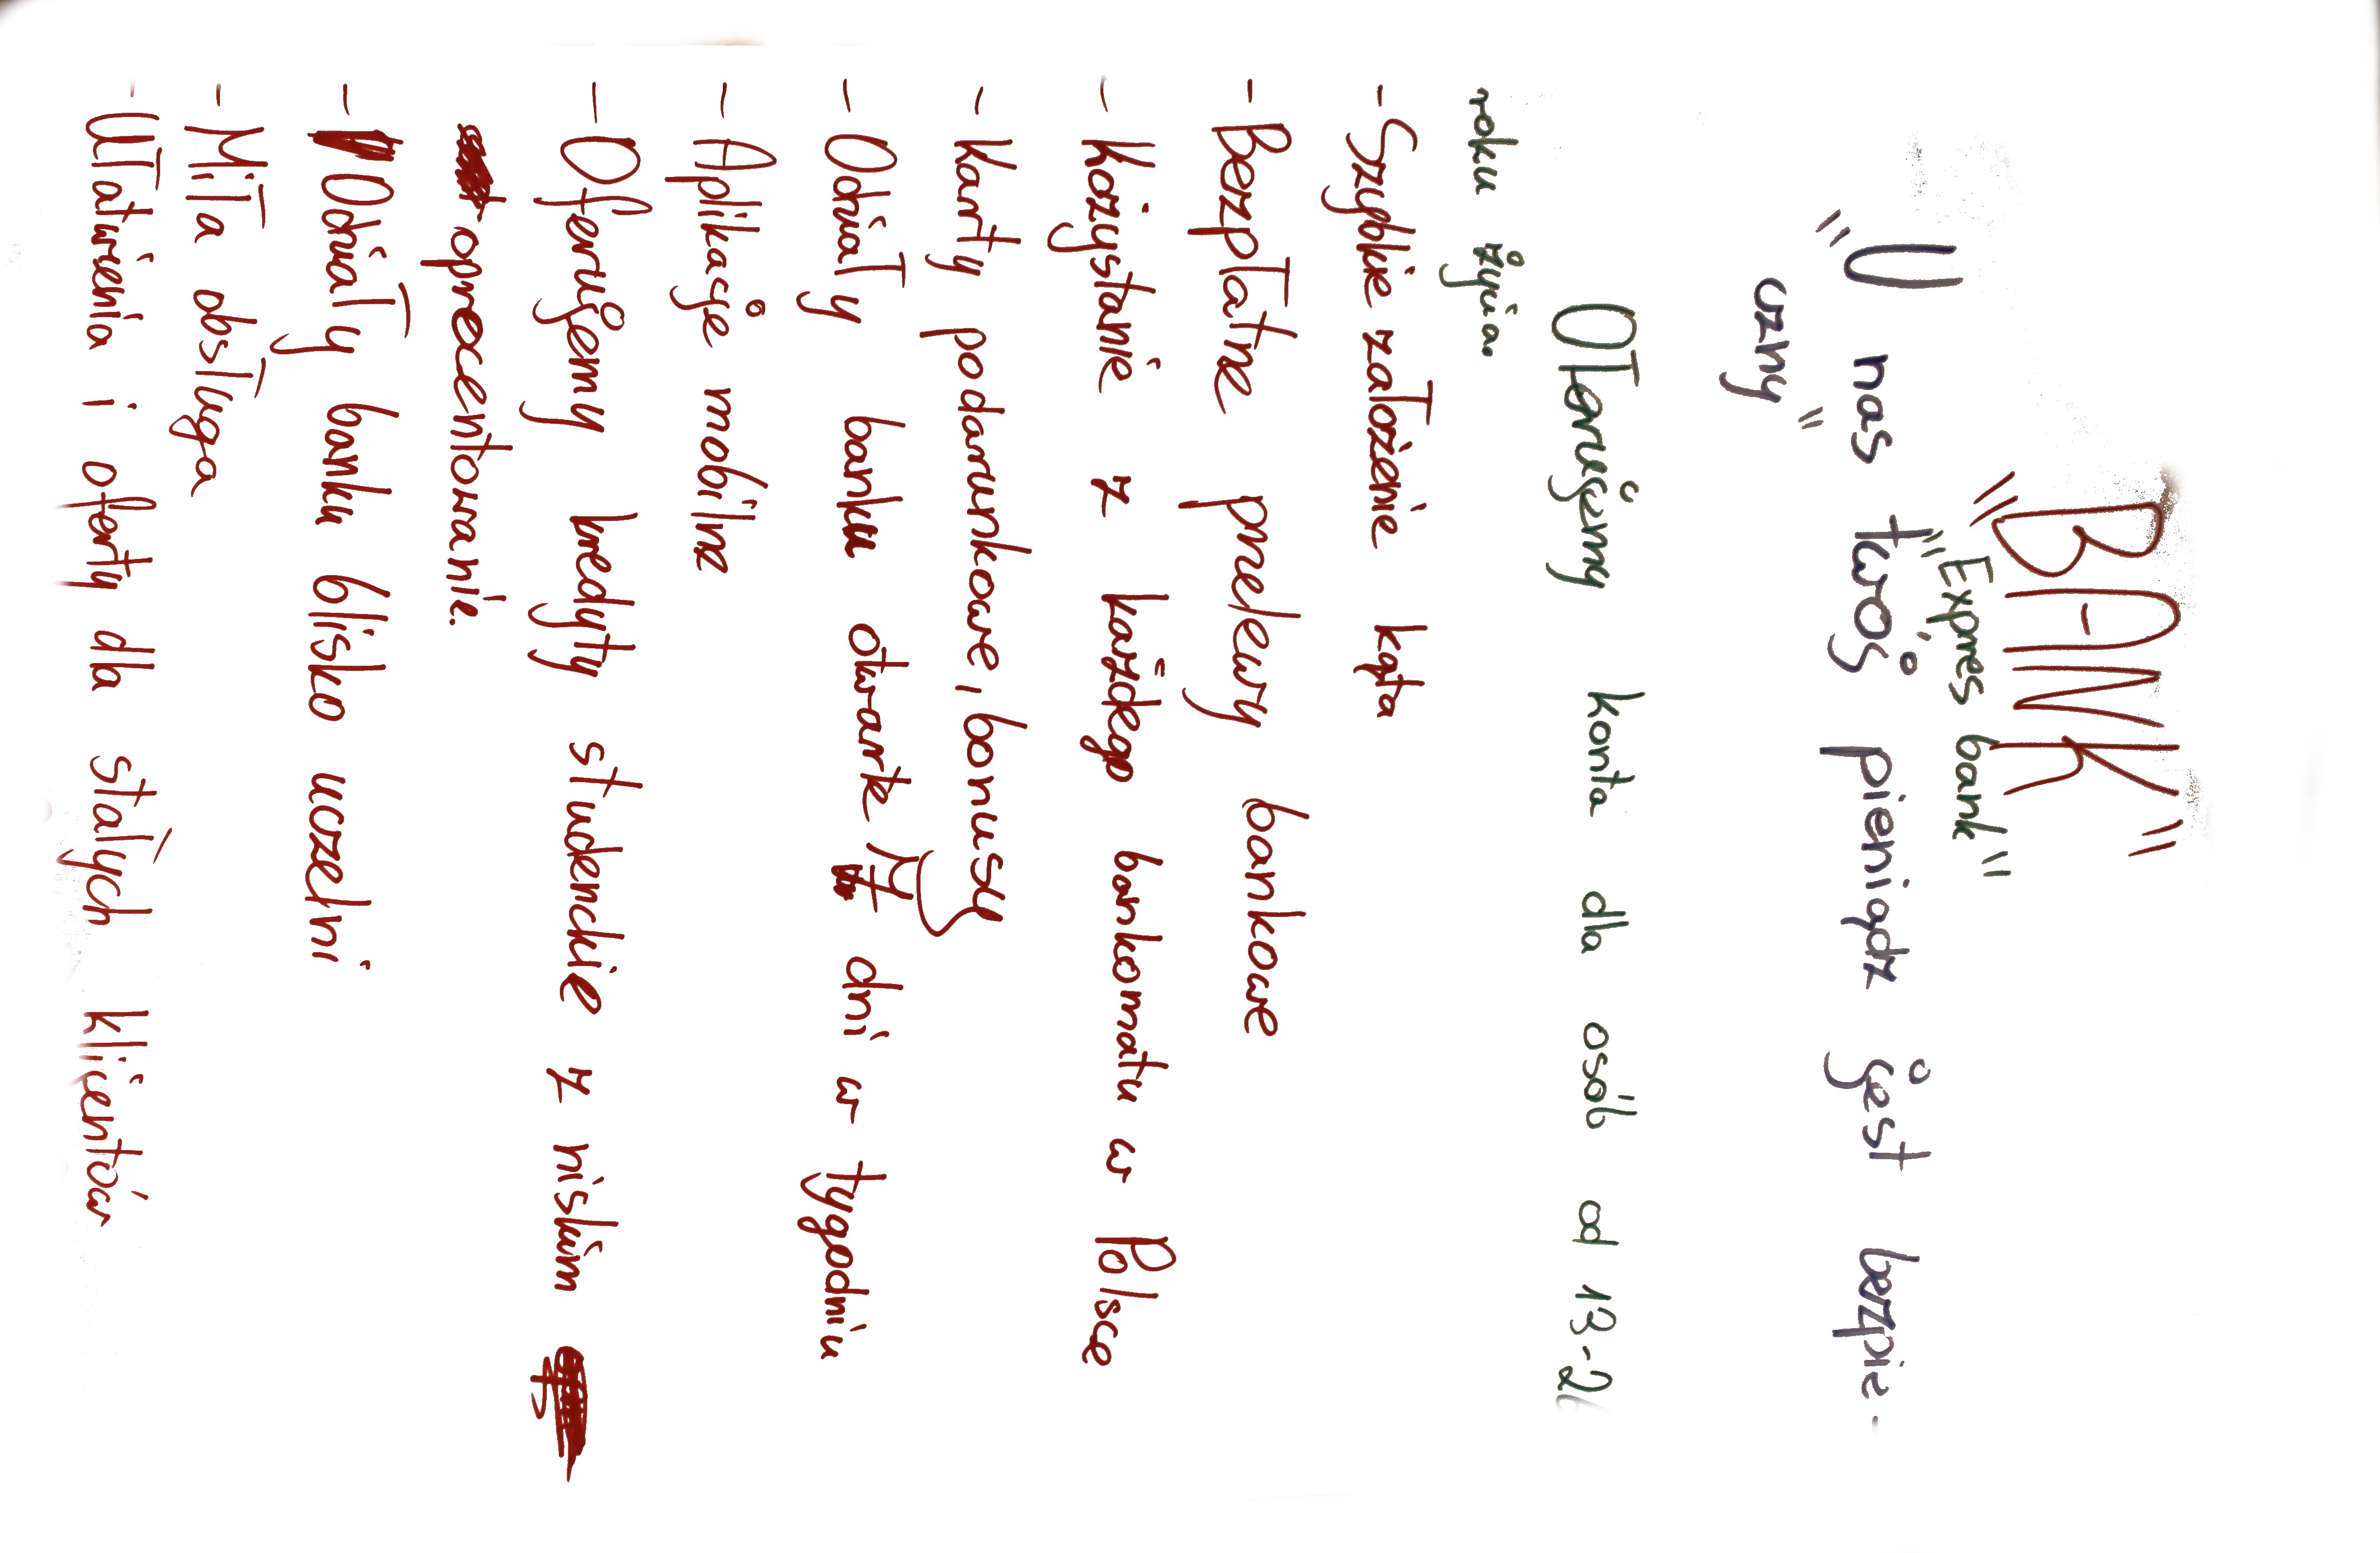 "BANK"
"Expres bank"
"U nas twój pieniądz jest bezpie-
czny"
Oferujemy konta dla osób od 13-26
roku życia.
- Szybkie założenie kąta
- Bezpłatne przelewy bankowe
- Kożystanie z każdego bankomatu w Polsce
- Karty podarunkowe, bonusy
- Odziały banku otwarte 7 dni w tygodniu
- Aplikacje mobilne
- Oferujemy kredyty studenckie z niskim
oprocentowanie.
- Odziały banku blisko uczelni
- Miła obsługa
- Ułatwienia i oferty dla stałych klientów